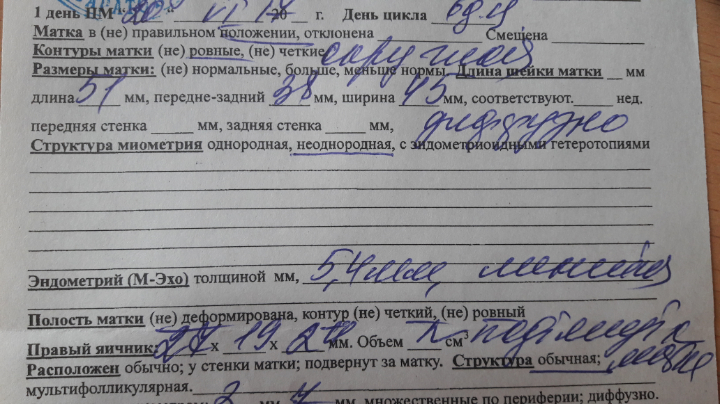 1 день ЦМ 20 VI 18 20 г. День цикла
Матка в (не) правильном положении, отклонена Смещена
Контуры матки (не) ровные, (не) четкие
Размеры матки: (не) нормальные, больше, меньше нормы. Длина шейки матки мм
длина 51 мм, передне-задний 38 мм, ширина 45 мм, соответствуют. нед.
передняя стенка мм, задняя стенка мм, диффузно
Структура миометрия однородная, неоднородная, с эндометриоидными гетеротопиями
Эндометрий (М-Эхо) толщиной мм, 5,4 мм, линейн
Полость матки (не) деформирована, контур (не) четкий, (не) ровный
Правый яичник: 27 х 19 х мм. Объем см
Расположен обычно; у стенки матки; подвернут за матку. Структура обычная;
мультифолликулярная.
мм, множественные по периферии; диффузно.